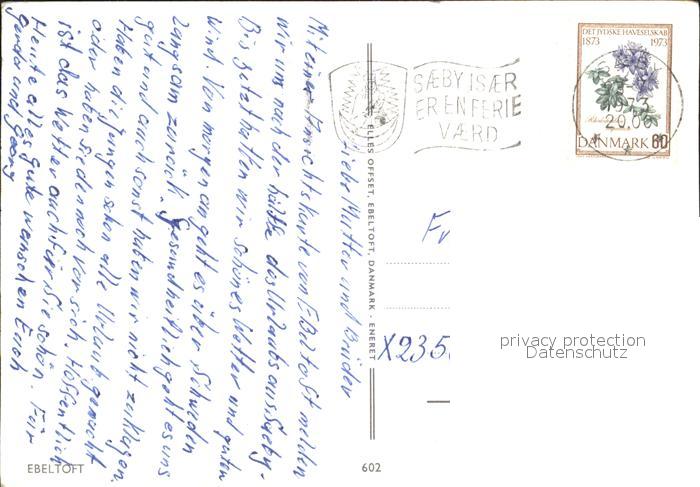 Liebe Mutter und Brüder
Mit einer Ansichtskarte von Ebeltoft melden
wir uns nach der Hälfte des Urlaubs aus Saeby.
Bis jetzt hatten wir schönes Wetter und guten
Wind. Von morgen an geht es über Schweden
langsam zurück. Gesundheitlich geht es uns
gut und auch sonst haben wir nicht zu klagen.
Haben die Jungen schon alle Urlaub gemacht
oder haben sie den noch vor sich. Hoffentlich
ist das Wetter auch für Sie schön. Für
Heute alles gute wünschen Euch
Gerda und Georg
EBELTOFT
602
ELLES OFFSET, EBELTOFT, DANMARK - ENERET
SÆBY ISÆR
ER EN FERIE
VÆRD
DET JYDSKE HAVESELSKAB
1873 1973
DANMARK 60
Fr
X235
privacy protection
Datenschutz